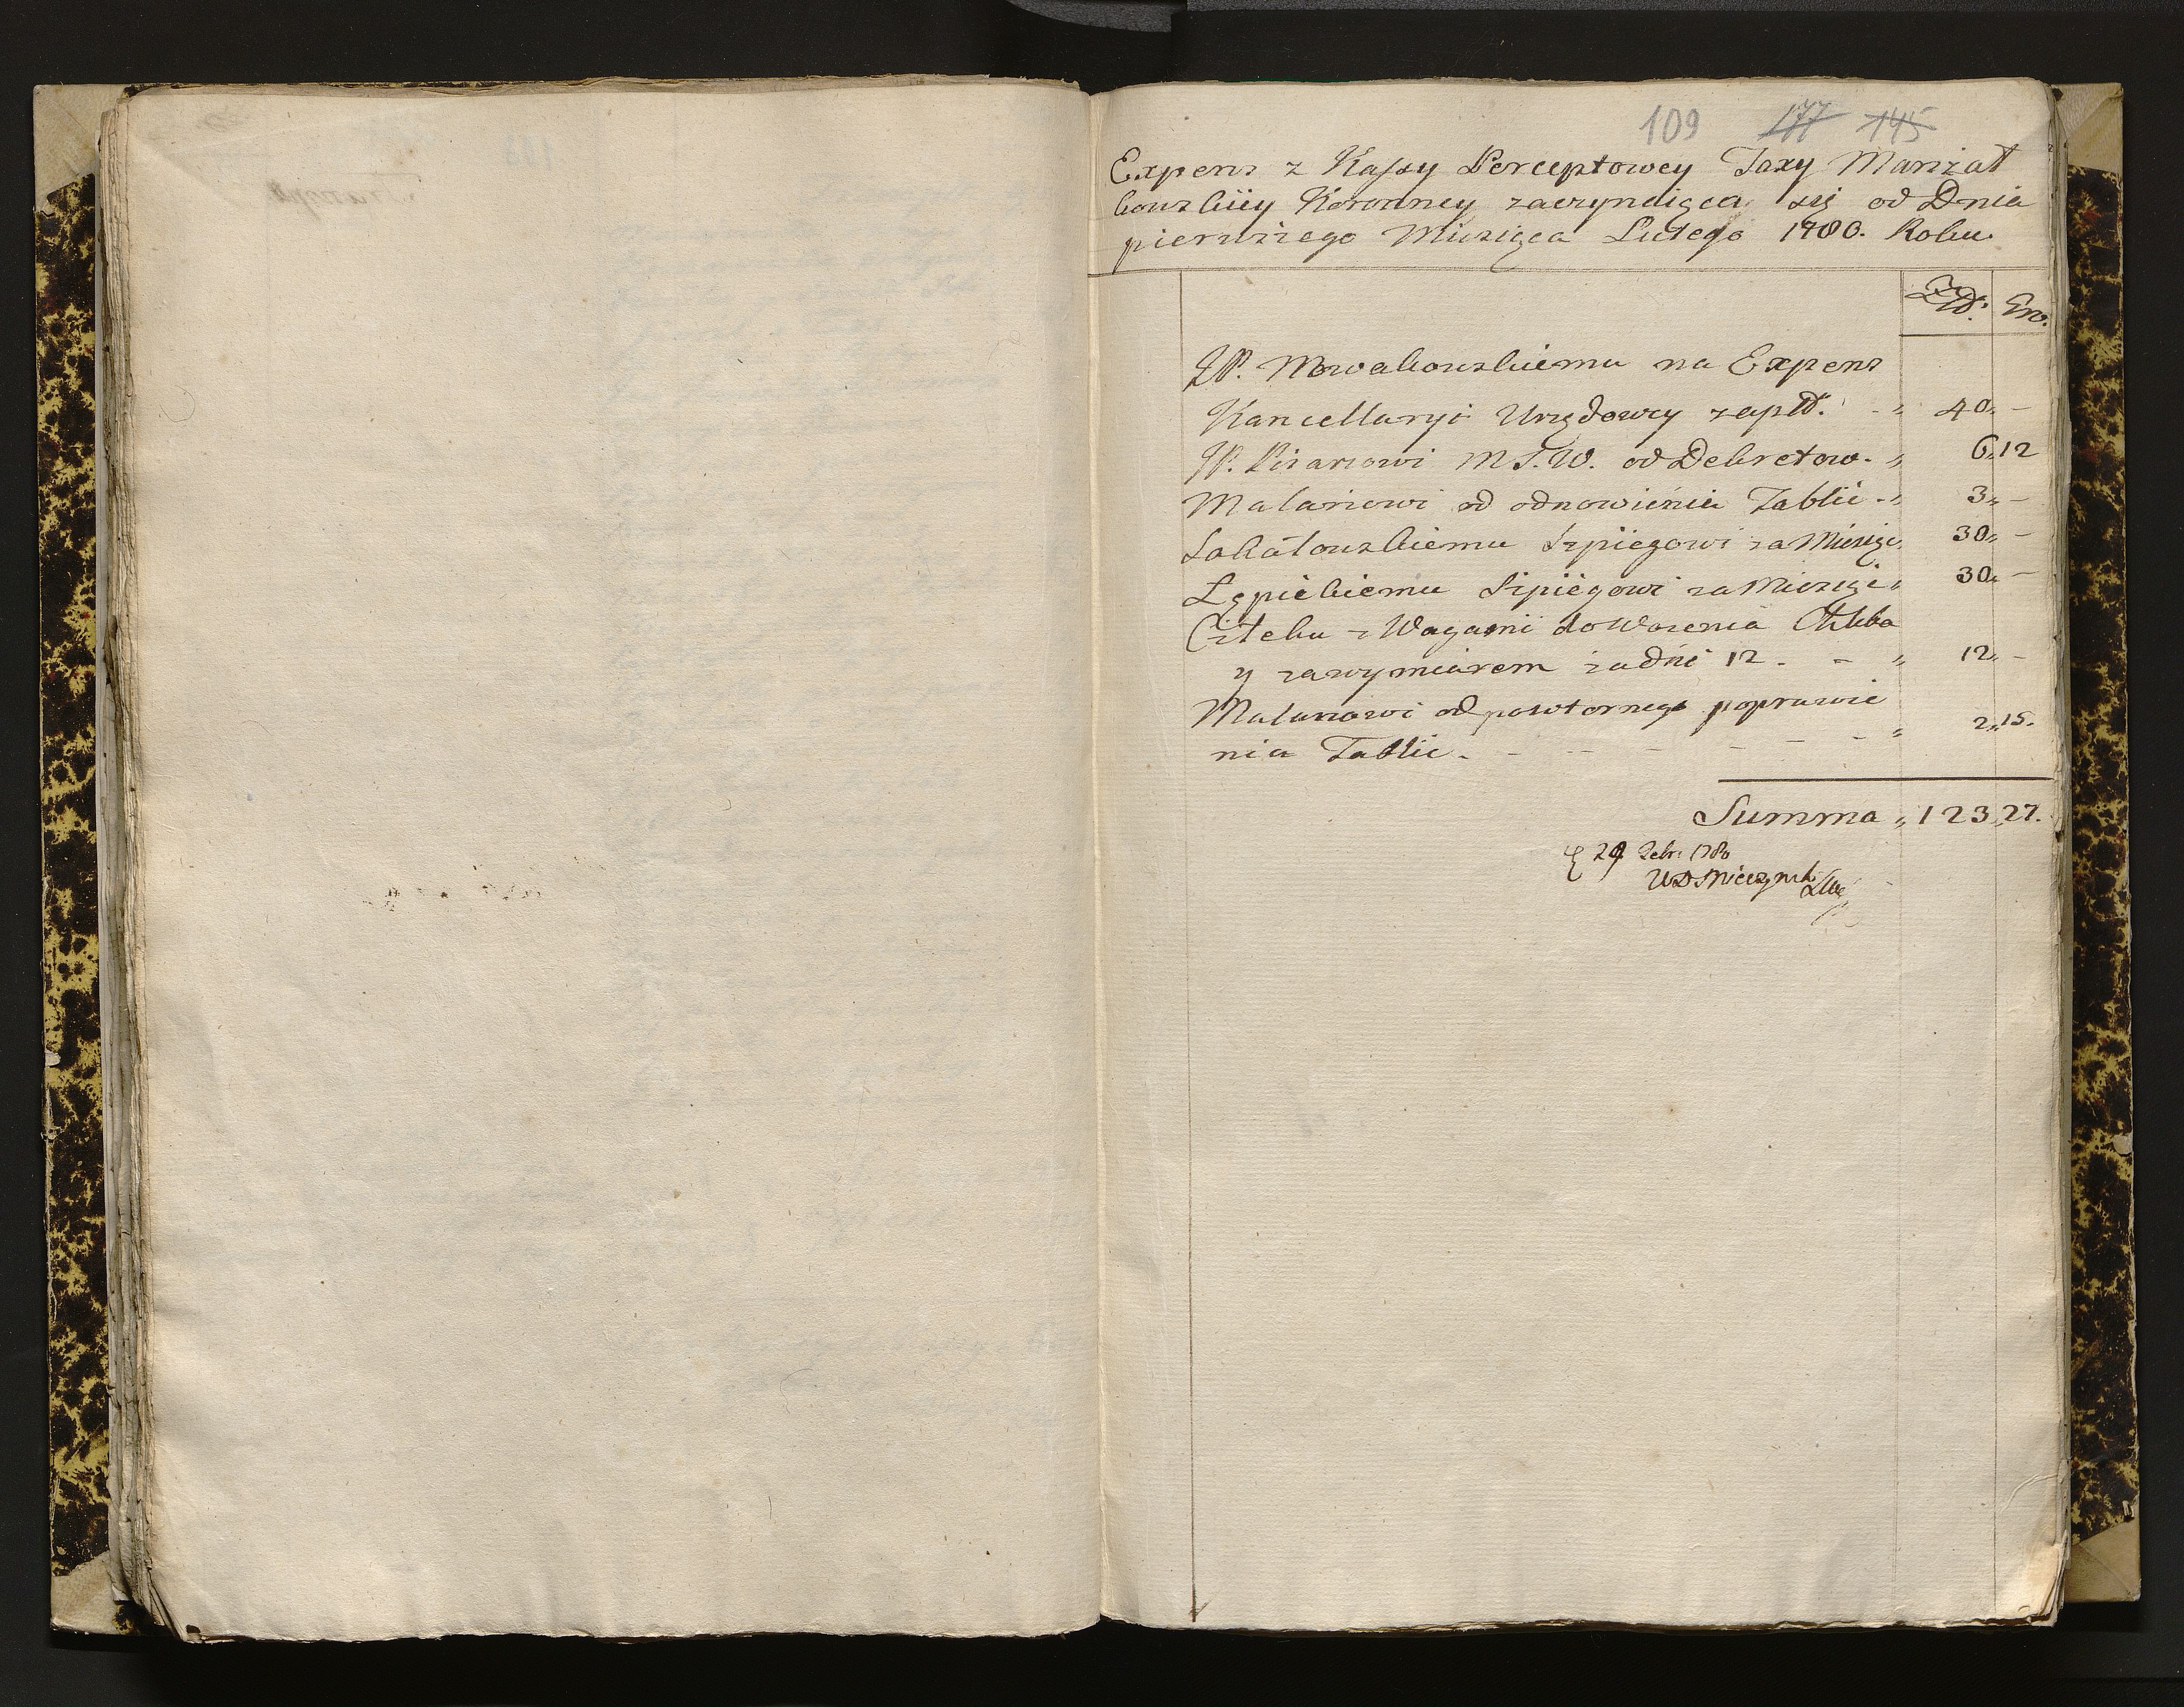 109 177 145
Expens z Kassy Perceptowey Taxy Marszał
kowskiey Koronney zaczynaiąca się od Dnia
pierwszego Miesiąca Lutego 1780. Roku.
Złł. Gro.
JP. Nowakowskiemu na Expens
Kancellaryi Urzędowey zapłł. - „ 40„ -
JP. Pisarzowi M.S.W. od Dekretow. „ 6„12
Malarzowi od odnowienia Tablic - „ 3„ -
Sakałowskiemu Szpiegowi za Miesiąc „ 30„ -
Łępickiemu Szpiegowi za Miesiąc „ 30„ -
z Wagami do Ważenia Chleba
y za wymiarem za dni 12 - - „ 12„ -
Malarzowi od powtornego poprawie
nia Tablic - - - - - - - „ 2„15.
Summa „ 123„27.
29 Febr: 1780